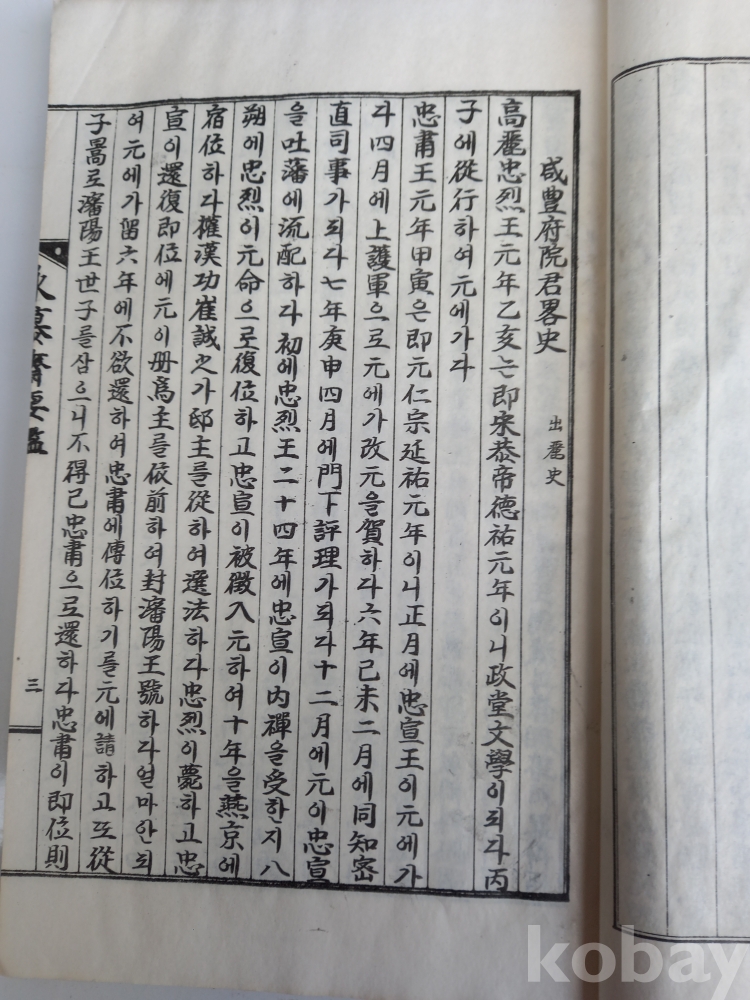 咸豊府院君畧史 出麗史
高麗忠烈王元年乙亥는即宋恭帝德祐元年이니政堂文學이되다丙
子에從行하여元에가다
忠肅王元年甲寅은即元仁宗延祐元年이니正月에忠宣王이元에가
다四月에上護軍으로元에가改元을賀하다六年己未二月에同知密
直司事가되다七年庚申四月에門下評理가되다十二月에元이忠宣
을吐藩에流配하다初에忠烈王二十四年에忠宣이内禪을受한지八
朔에忠烈이元命으로復位하고忠宣이被徵入元하여十年을燕京에
宿位하다權漢功崔誠之가邸主를從하여選法하다忠烈이薨하고忠
宣이還復即位에元이册爲主를依前하여封瀋陽王號하다얼마안되
여元에가留六年에不欲還하여忠肅에傳位하기를元에請하고또從
子暠로瀋陽王世子를삼으니不得已忠肅으로還하다忠肅이即位則
慕齋要鑑
三
kobay